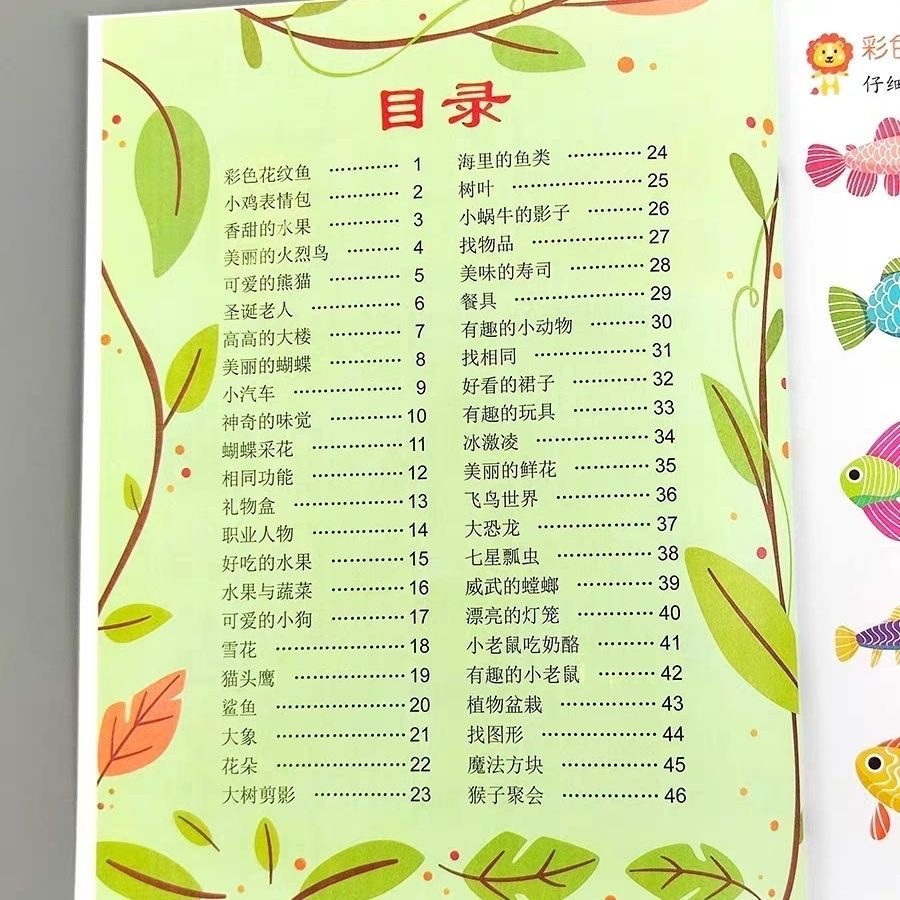 目录
彩色花纹鱼 ………… 1
小鸡表情包 ………… 2
香甜的水果 ………… 3
美丽的火烈鸟 ………… 4
可爱的熊猫 ………… 5
圣诞老人 ………… 6
高高的大楼 ………… 7
美丽的蝴蝶 ………… 8
小汽车 ………… 9
神奇的味觉 ………… 10
蝴蝶采花 ………… 11
相同功能 ………… 12
礼物盒 ………… 13
职业人物 ………… 14
好吃的水果 ………… 15
水果与蔬菜 ………… 16
可爱的小狗 ………… 17
雪花 ………… 18
猫头鹰 ………… 19
鲨鱼 ………… 20
大象 ………… 21
花朵 ………… 22
大树剪影 ………… 23
海里的鱼类 ………… 24
树叶 ………… 25
小蜗牛的影子 ………… 26
找物品 ………… 27
美味的寿司 ………… 28
餐具 ………… 29
有趣的小动物 ………… 30
找相同 ………… 31
好看的裙子 ………… 32
有趣的玩具 ………… 33
冰激凌 ………… 34
美丽的鲜花 ………… 35
飞鸟世界 ………… 36
大恐龙 ………… 37
七星瓢虫 ………… 38
威武的螳螂 ………… 39
漂亮的灯笼 ………… 40
小老鼠吃奶酪 ………… 41
有趣的小老鼠 ………… 42
植物盆栽 ………… 43
找图形 ………… 44
魔法方块 ………… 45
猴子聚会 ………… 46
彩色
仔细